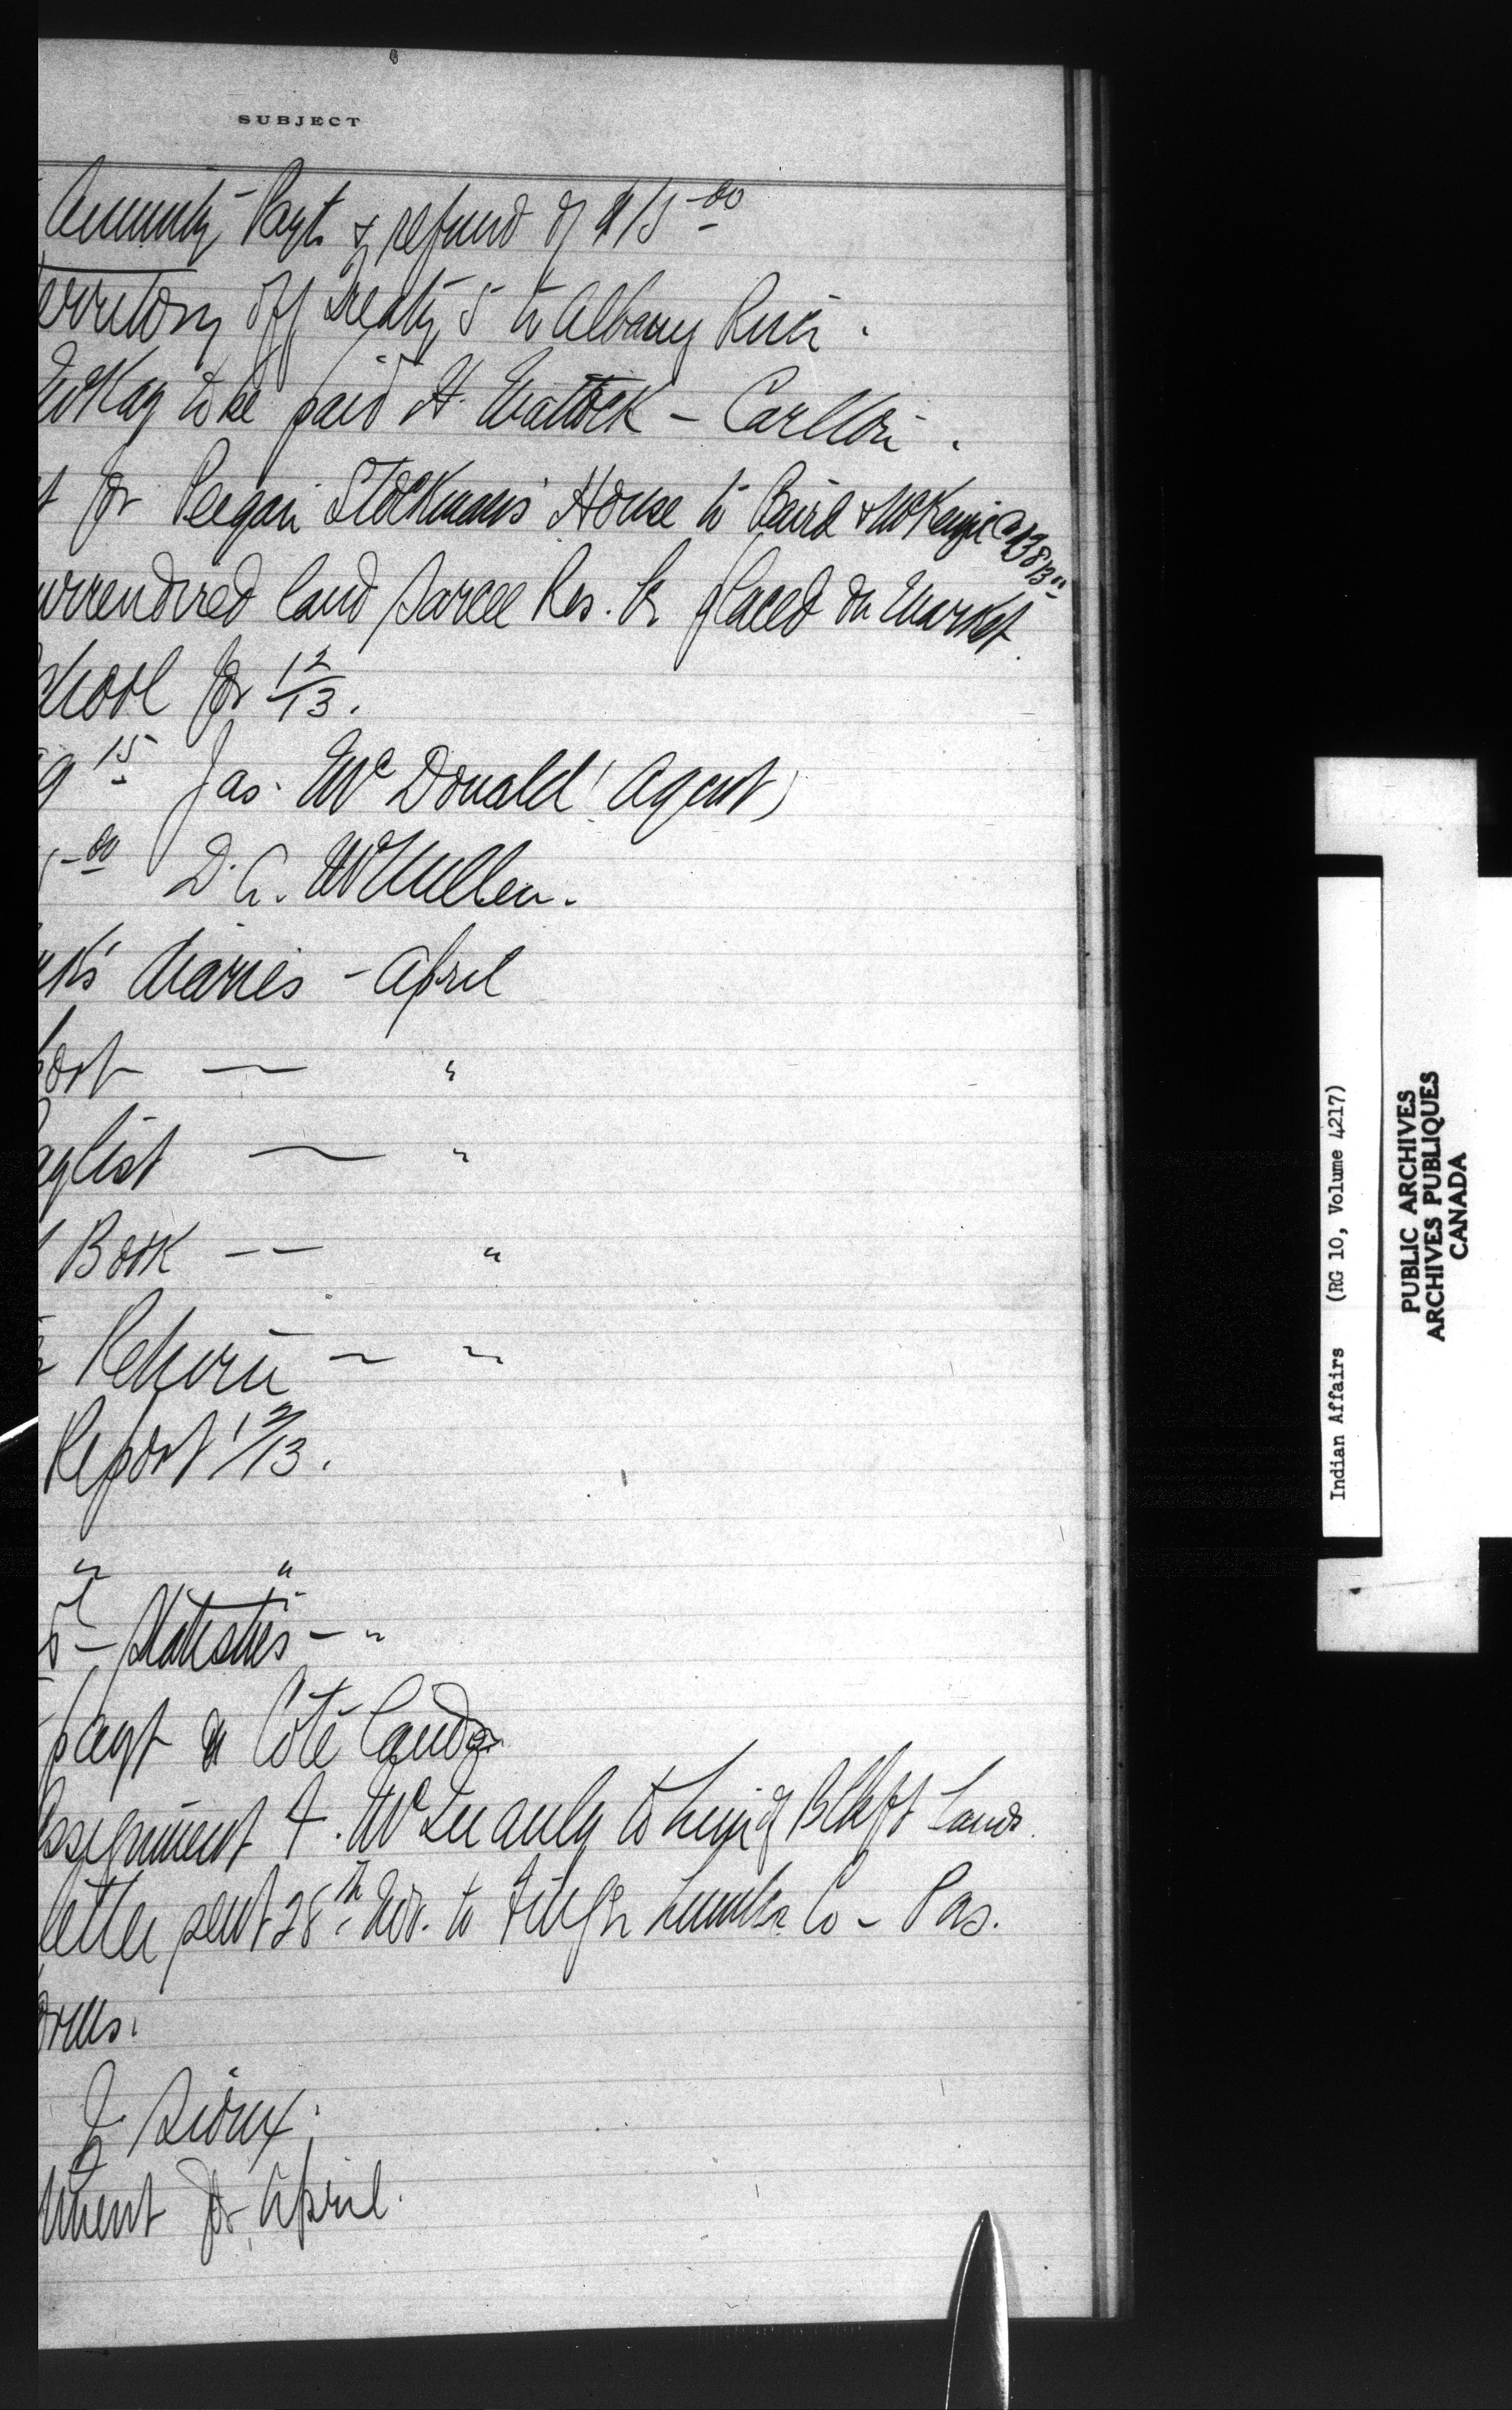 SUBJECT
Annuity Payt & refund of $15 00
erritory off Treaty 5 to Albany River.
McKay to be paid H. - Carlton.
t for Peegan Stockman's House to Baird & McKenzie
urrendered land Sarcee Res. to placed on Market.
chool for 12/13.
9 15 Jas. McDonald (Agent)
00 D. A. McMullen.
diaries - April
port — "
aylist — "
Book - - "
Return - "
Report 12/13.
" "
Statistics - "
payt Coté Lands
ssignment to Lands.
letter sent 28th Nov. to Lumber Co - Pas.
orms.
Sioux.
tment for April.
Indian Affairs (RG 10, Volume 4217)
PUBLIC ARCHIVES
ARCHIVES PUBLIQUES
CANADA